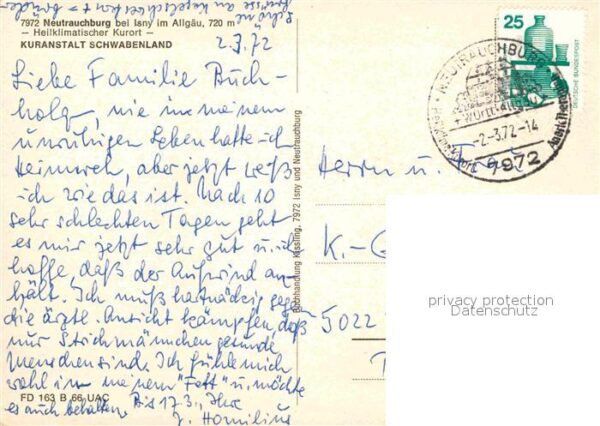 Schöne
Grüße an
7972 Neutrauchburg bei Isny im Allgäu, 720 m
— Heilklimatischer Kurort —
KURANSTALT SCHWABENLAND
2.3.72
Liebe Familie Buch-
holz, nie in meinem
unruhigen Leben hatte ich
Heimweh, aber jetzt weiß
ich wie das ist. Nach 10
sehr schlechten Tagen geht
es mir jetzt sehr gut u. ich
hoffe, daß der Aufwind an-
hält. Ich muß hartnäckig gegen
die ärztl. Ansicht kämpfen, daß
nur Strichmännchen gesunde
Menschen sind. Ich fühle mich
wohl in meinem "Fett" u. möchte
es auch behalten. Bis 17.3., Ihre
J. Homilius
FD 163 B 66 UAC
Buchhandlung Kissling, 7972 Isny und Neutrauchburg
25
DEUTSCHE BUNDESPOST
NEUTRAUCHBURG
Württ. Allgäu
-2.-3.72-14
7972
Herrn u. Frau
K.-G
5022
privacy protection
Datenschutz